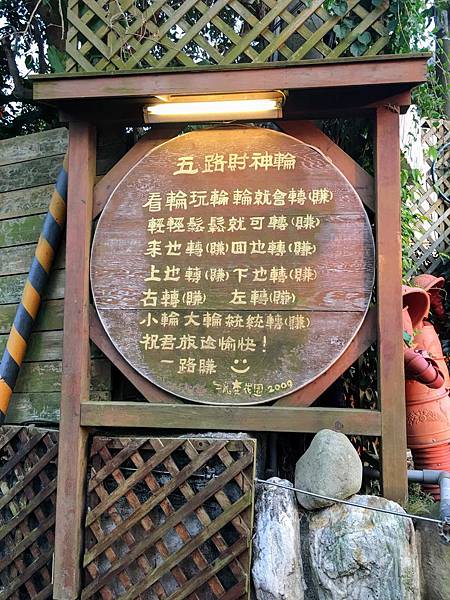 五路財神輪
看輪玩輪輪就會轉(賺)
輕輕鬆鬆就可轉(賺)
來也轉(賺)回也轉(賺)
上也轉(賺)下也轉(賺)
右轉(賺) 左轉(賺)
小輪大輪統統轉(賺)
祝君旅途愉快!
一路賺
花園 2009